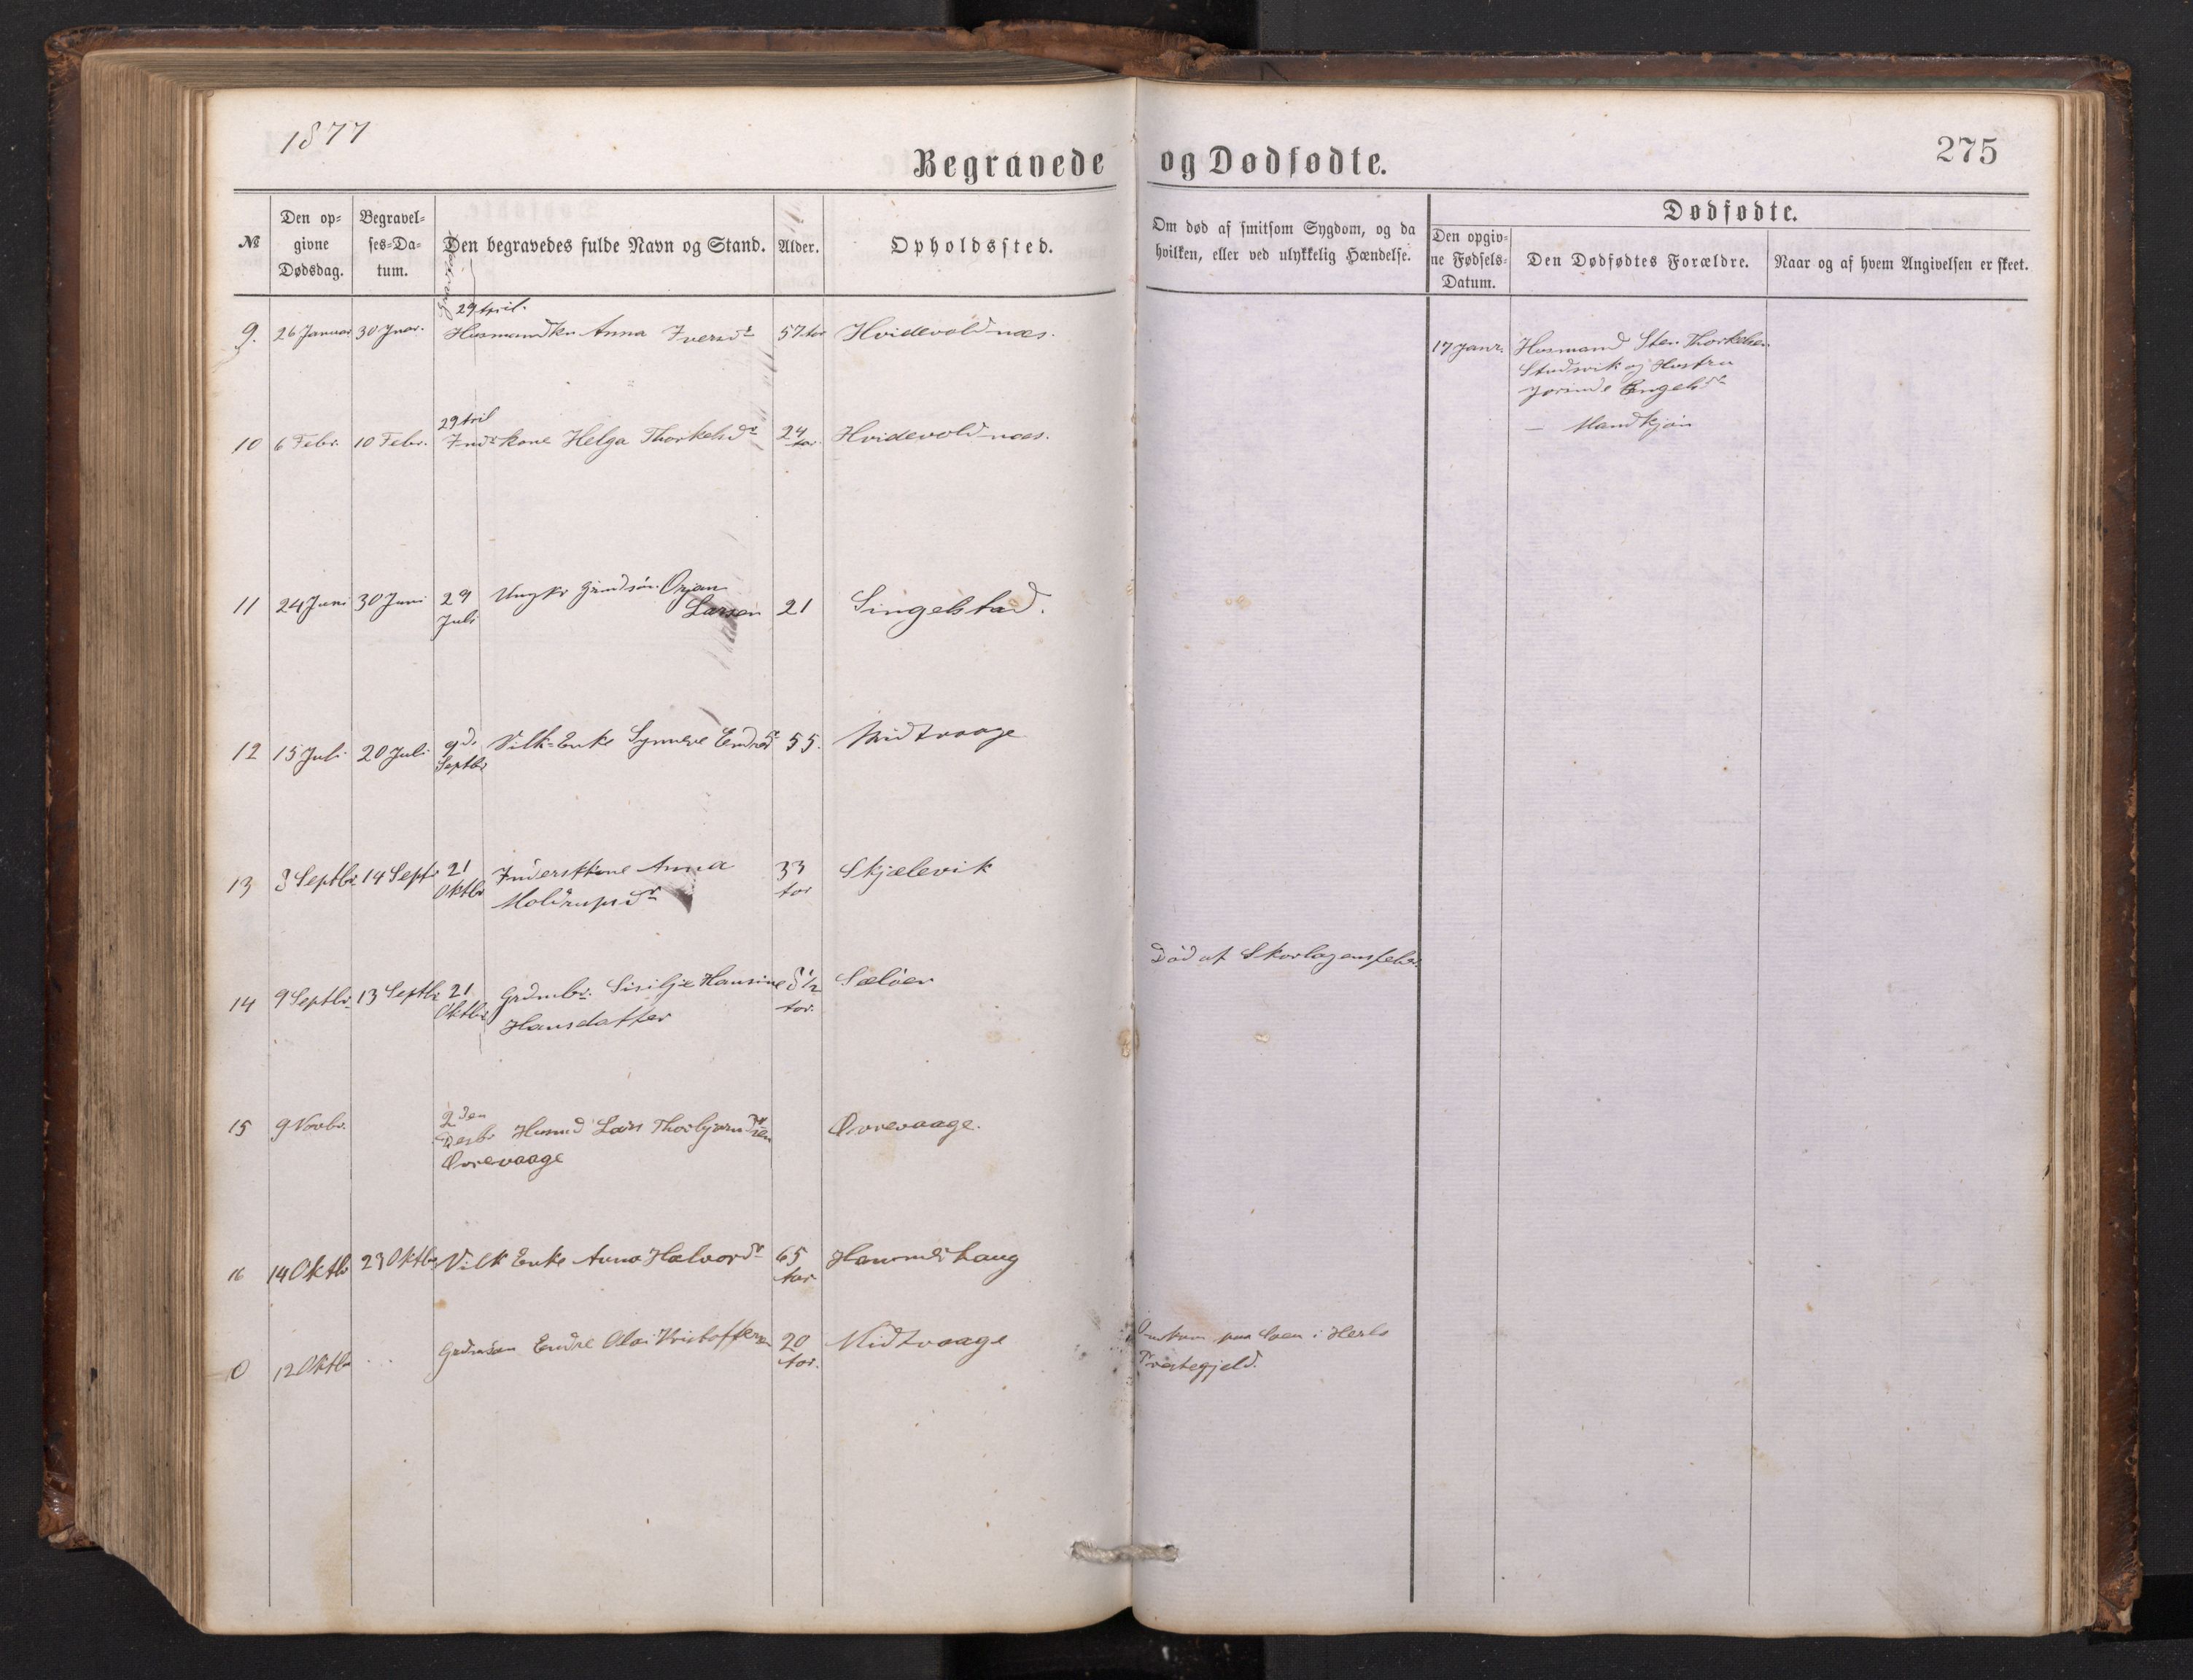 1877
Begravede og Dødfødte.
275
№
Den op=
givne
Dødsdag.
Begravel=
ses=Da=
tum.
Den begravedes fulde Navn og Stand.
Alder.
Opholdssted.
Om død af smitsom Sygdom, og da
hvilken, eller ved ulykkelig Hændelse.
Dødfødte.
Den opgiv=
ne Fødsels=
Datum.
Den Dødfødtes Forældre.
Naar og af hvem Angivelsen er skeet.
29 April.
9. 26 Januar 30 Jnar. Husmandkn Anna Iversdr 57 Aar Hvidevoldnæs.
17 Janr. Husmand Sten Thorkelsen
Studsvik og Hustru
Jorinde Engelsdr
— Mandkjøn
29 April
10 6 Febr. 10 Febr. Indrkone Helga Thorkelsdr 24 Aar. Hvidevoldnæs.
11 24 Juni 30 Juni 29 Juli Ungkr Grmdsøn Ørjan
Larsen 21 Singelstad.
12 15 Juli 20 Juli 9d. Septbr Vilk=Enke Synneve Endresdr 55. Midtvaage
13 8 Septbr 14 Septr 21 Oktbr Inderstkone Anna
Moldrupsdr 33 Aar Skjælevik
Død af Skarlagensfeber.
14 9 Septbr. 13 Septbr 21. Oktbr Grdmbr. Sisilje Hansine 8 1/2 Aar. Sæløen
Hansdatter
15 9 Novbr. 2den Desbr Husmd Lars Thorbjørnsen Øvrevaage.
Øvrevaage
16 14 Oktbr 23 Oktbr Vilk Enke Anna Halvorsdr 65 Aar Hammerhaug
0 12 Oktbr ... Grdmsøn Endre Olai Kristoffersen 20 Aar. Midtvaage
Omkom paa Søen i Herlø
Prestegjeld.